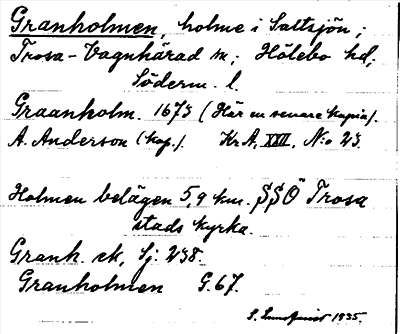 Granholmen, holme i Saltsjön;
Trosa-Vagnhärad sn; Hölebo hd;
Söderm. l.
Graanholm. 1673 (Här en senare kopia).
A. Anderson (kop.). Kr.A, XXII, N:o 23.
Holmen belägen 5,9 km. SSÖ Trosa
stads kyrka.
Grank. ek, Sj: 238.
Granholmen G.67.
S. 1935.